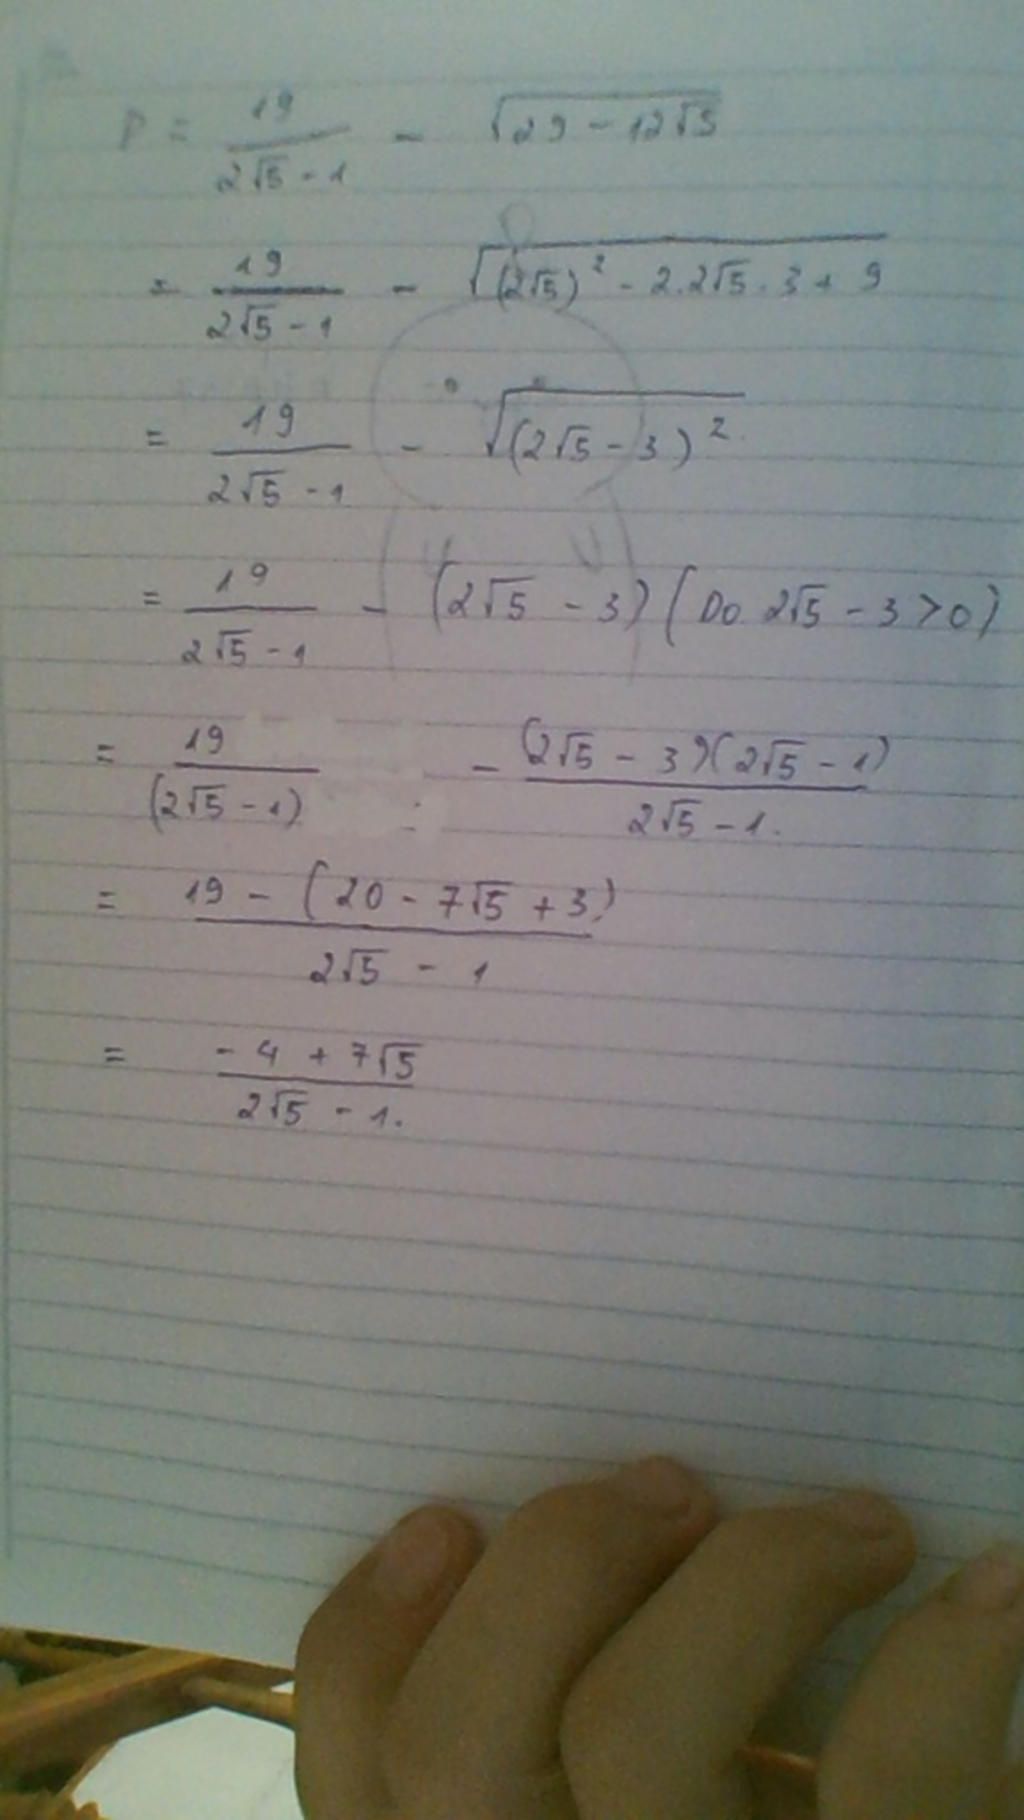 P = 19/(2√5 - 1) - √(29 - 12√5)
= 19/(2√5 - 1) - √((2√5)² - 2.2√5.3 + 9)
= 19/(2√5 - 1) - √((2√5 - 3)²)
= 19/(2√5 - 1) - (2√5 - 3) (Do 2√5 - 3 > 0)
= 19/(2√5 - 1) - (2√5 - 3)(2√5 - 1)/(2√5 - 1).
= (19 - (20 - 7√5 + 3))/(2√5 - 1)
= (-4 + 7√5)/(2√5 - 1).